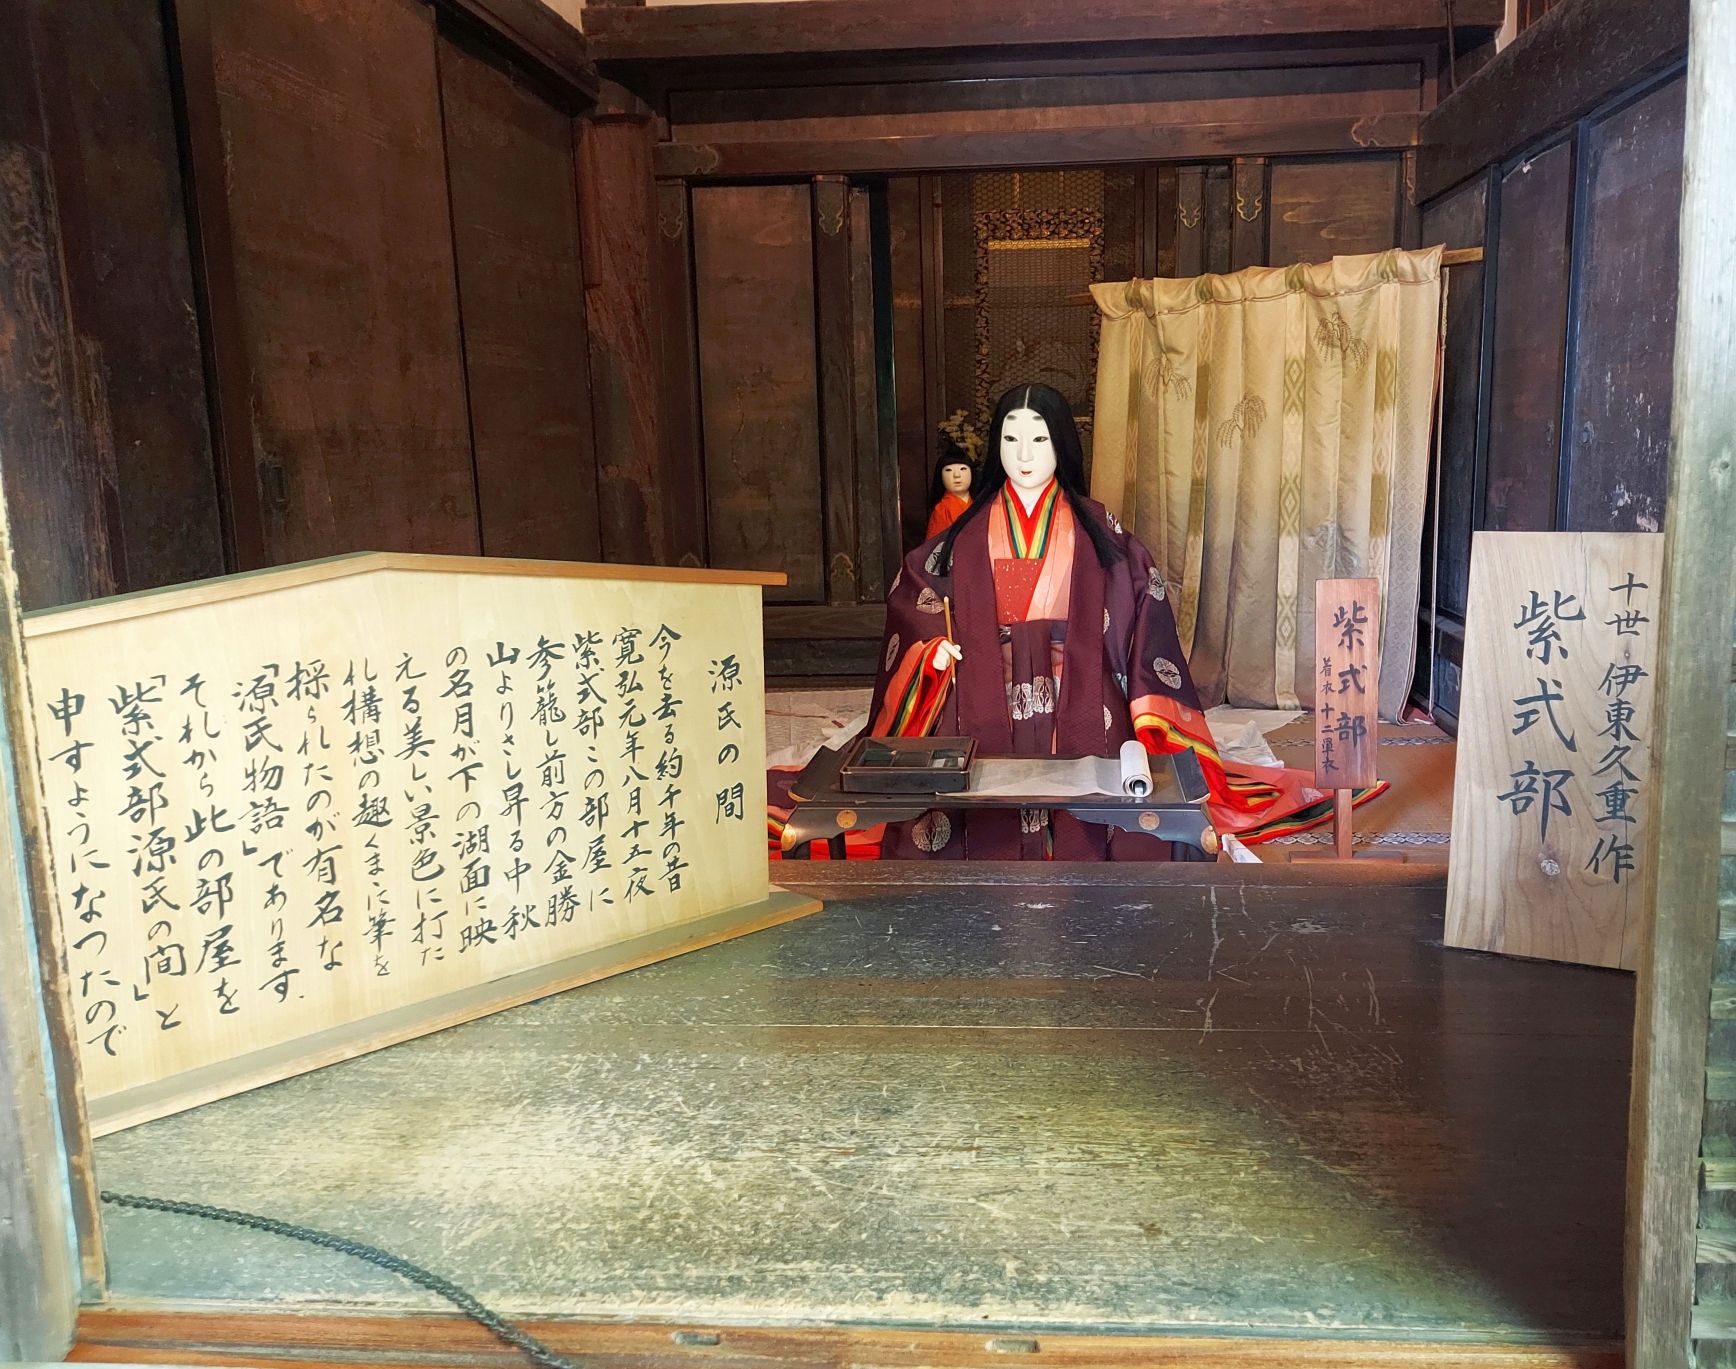 源氏の間
今を去る約千年の昔
寛弘元年八月十五夜
紫式部この部屋に
参籠し前方の金勝
山よりさし昇る中秋
の名月が下の湖面に映
える美しい景色に打た
れ構想の趣くまに筆を
採られたのが有名な
「源氏物語」であります.
それから此の部屋を
「紫式部源氏の間」と
申すようになつたので
紫式部
着衣十二単衣
十世・伊東久重作
紫式部